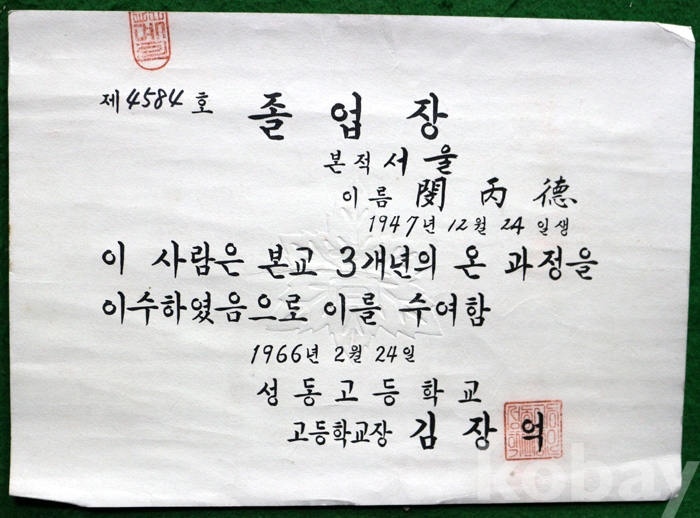 제 4584 호
졸 업 장
본적 서울
이름 閔丙德
1947년 12월 24일생
이 사람은 본교 3개년의 온 과정을
이수하였음으로 이를 수여함
1966년 2월 24일
성동고등학교
고등학교장 김장억
kobay